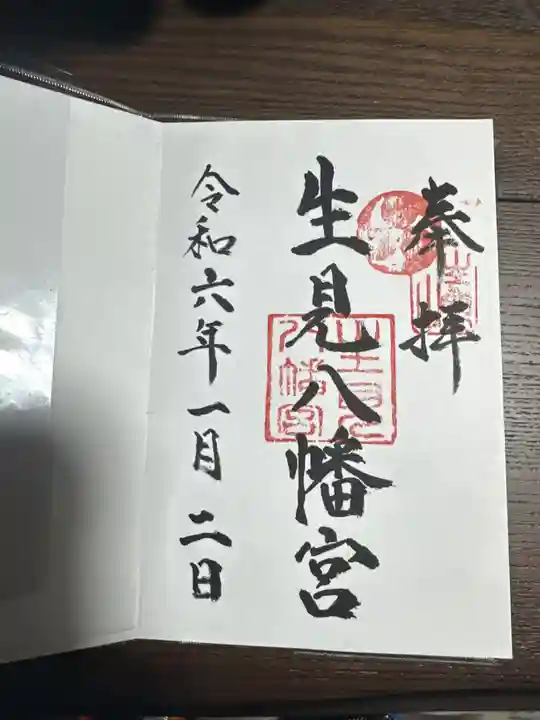 奉拝
生見八幡宮
生見八幡宮
令和六年一月二日